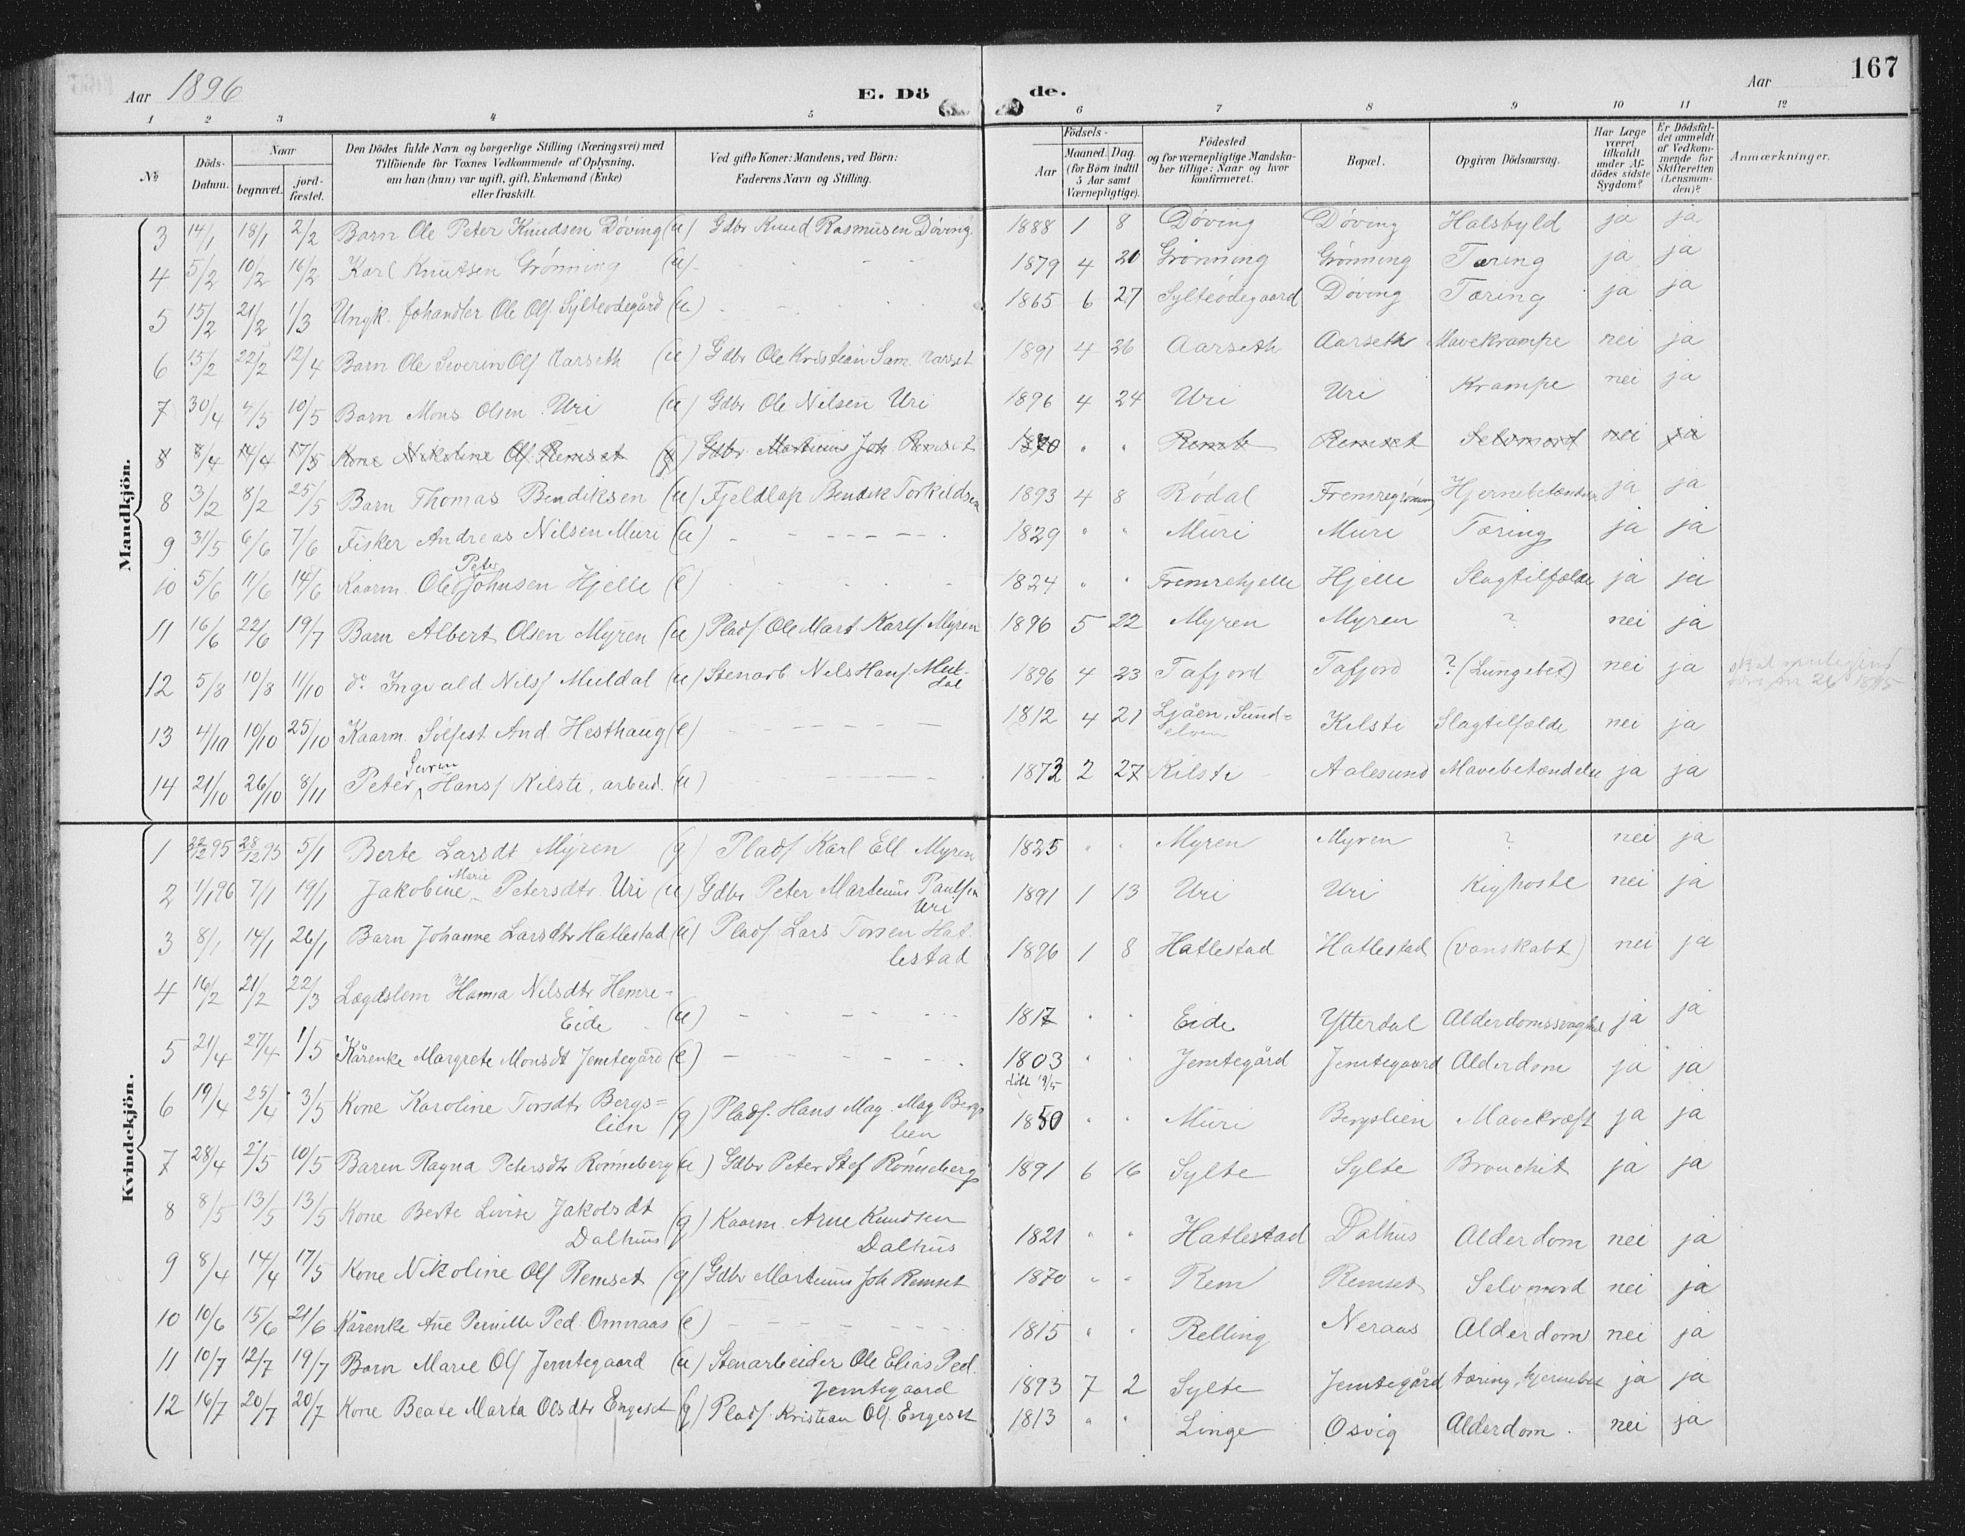 Aar 1896 E. Döde. Aar 167
1 2 3 4 5 6 7 8 9 10 11 12
№ Döds-Datum. Naar begravet. jord-fæstet. Den Dödes fulde Navn og borgerlige Stilling (Næringsvei) med Tilföiende for Voxnes Vedkommende af Oplysning, om han (hun) var ugift, gift, Enkemand (Enke) eller fraskilt. Ved gifte Koner: Mandens, ved Börn: Faderens Navn og Stilling. Födsels- Aar Maaned. Dag. (for Börn indtil 5 Aar samt Værnepligtige). Födested og for værnepligtige Mandskaber tillige: Naar og hvor konfirmeret. Bopæl. Opgiven Dödsaarsag. Har Læge været tilkaldt under Afdödes sidste Sygdom? Er Dödsfaldet anmeldt af Vedkommende for Skifteretten (Lensmanden)? Anmærkninger.
Mandkjön.
3 14/1 18/1 2/2 Barn Ole Peter Knudsen Døving (u) Gdbr Knud Rasmusen Døving 1888 1 8 Døving Døving Halsbyld ja ja
4 5/2 10/2 16/2 Karl Knutsen Grønning (u) 1879 4 20 Grønning Grønning Tæring ja ja
5 15/2 21/2 1/3 Ungk. Johandler Ole Ols Sylteødegård (u) 1865 6 27 Sylteødegaard Døving Tæring ja ja
6 15/2 22/2 12/4 Barn Ole Severin Ols Aarseth (u) Gdbr Ole Kristian Sam. Aarset 1891 4 26 Aarseth Aarseth Mavekrampe nei ja
7 30/4 7/5 10/5 Barn Mons Olsen Uri (u) Gdbr Ole Nilsen Uri 1896 4 24 Uri Uri Krampe nei ja
8 8/4 14/4 17/5 Kone Nikoline Ols Remset (g) Gdbr Martinus Joh Remset 1870 " " Remset Selvmord nei ja
8 3/2 8/2 25/5 Barn Thomas Bendiksen (u) Fjeldlap Bendik Torkildsen 1893 4 8 Rödal Hjernebetændelse ja ja
9 31/5 6/6 7/6 Fisker Andreas Nilsen Muri (u) 1829 " " Muri Muri Tæring ja ja
10 5/6 11/6 14/6 Kaarm. Ole Peter Johnsen Hjelle (e) 1824 " " Fremrehjelle Hjelle Slagtilfælde ja ja
11 16/6 22/6 19/7 Barn Albert Olsen Myren (u) Pladf. Ole Mart Karls. Myren 1896 5 22 Myren Myren ? nei ja
12 5/8 10/8 11/10 do Ingvald Nils/ Muldal (u) Stenarb Nils Hans/ Muldal 1896 4 23 Tafjord Tafjord ? (Lungebet) nei ja
13 4/10 10/10 25/10 Kaarm. Sølfest And Hesthaug (e) 1812 4 21 Ljåen, Sundelven Kilsti Slagtilfælde nei ja
14 21/10 26/10 8/11 Peter Severin Hans/ Kilsti, arbeid. (u) 1873 2 27 Kilsti Aalesund Mavebetændelse ja ja
Kvindekjön.
1 22/12 95 28/12 95 5/1 Berte Larsdt Myren (g) Pladf Karl Ell Myren 1825 " " Myren Myren ? nei ja
2 1/1 96 7/1 19/1 Jakobine Marie Petersdtr Uri (u) Gdbr Peter Martinus Paulsen Uri 1891 1 13 Uri Uri Kighoste nei ja
3 8/1 14/1 26/1 Barn Johanne Larsdtr Hatlestad (u) Pladf. Lars Torsen Hatlestad 1896 1 8 Hatlestad Hatlestad (vanskabt) nei ja
4 16/2 21/2 22/3 Lægdslem Hanna Nilsdtr Hemre-Eide (u) 1817 " " Eide Ytterdal Alderdomssvaghed ja ja
5 21/4 27/4 1/5 Kårenke Margrete Monsdt Jemtegård (e) 1803 " " Jemtegård Jemtegaard Alderdom ja ja
6 19/4 25/4 3/5 Kone Karoline Torsdtr Bergslien (g) Pladf. Hans Mag. Mag Bergslien 1850 " " Muri Bergslien Mavekræft ja ja
7 28/4 2/5 10/5 Baren Ragna Petersdtr Rønneberg (u) Gdbr Peter Stef Rønneberg 1891 6 16 Sylte Sylte Bronchit ja ja
8 8/5 13/5 13/5 Kone Berte Livise Jakobsdt Dalhus (g) Kaarm. Arne Knudsen Dalhus 1821 " " Hatlestad Dalhus Alderdom nei ja
9 8/4 14/4 17/5 Kone Nikoline Ols Remset (g) Gdbr Martinus Joh Remset 1870 " " Rem Remset Selvmord nei ja
10 10/6 15/6 21/6 Kårenke Ane Pernille Ped. Omnraas (e) 1815 " " Relling Neraas Alderdom nei ja
11 10/7 12/7 19/7 Barn Marie Ols Jemtegaard (u) Stenarbeider Ole Elias Ped. Jemtegaard 1893 7 2 Sylte Jemtegård tæring, hjernebet ja ja
12 16/7 20/7 20/7 Kone Beate Marta Olsdtr Engeset (g) Pladf. Kristian Ols. Engeset 1813 " " Linge Osvig Alderdom. nei ja